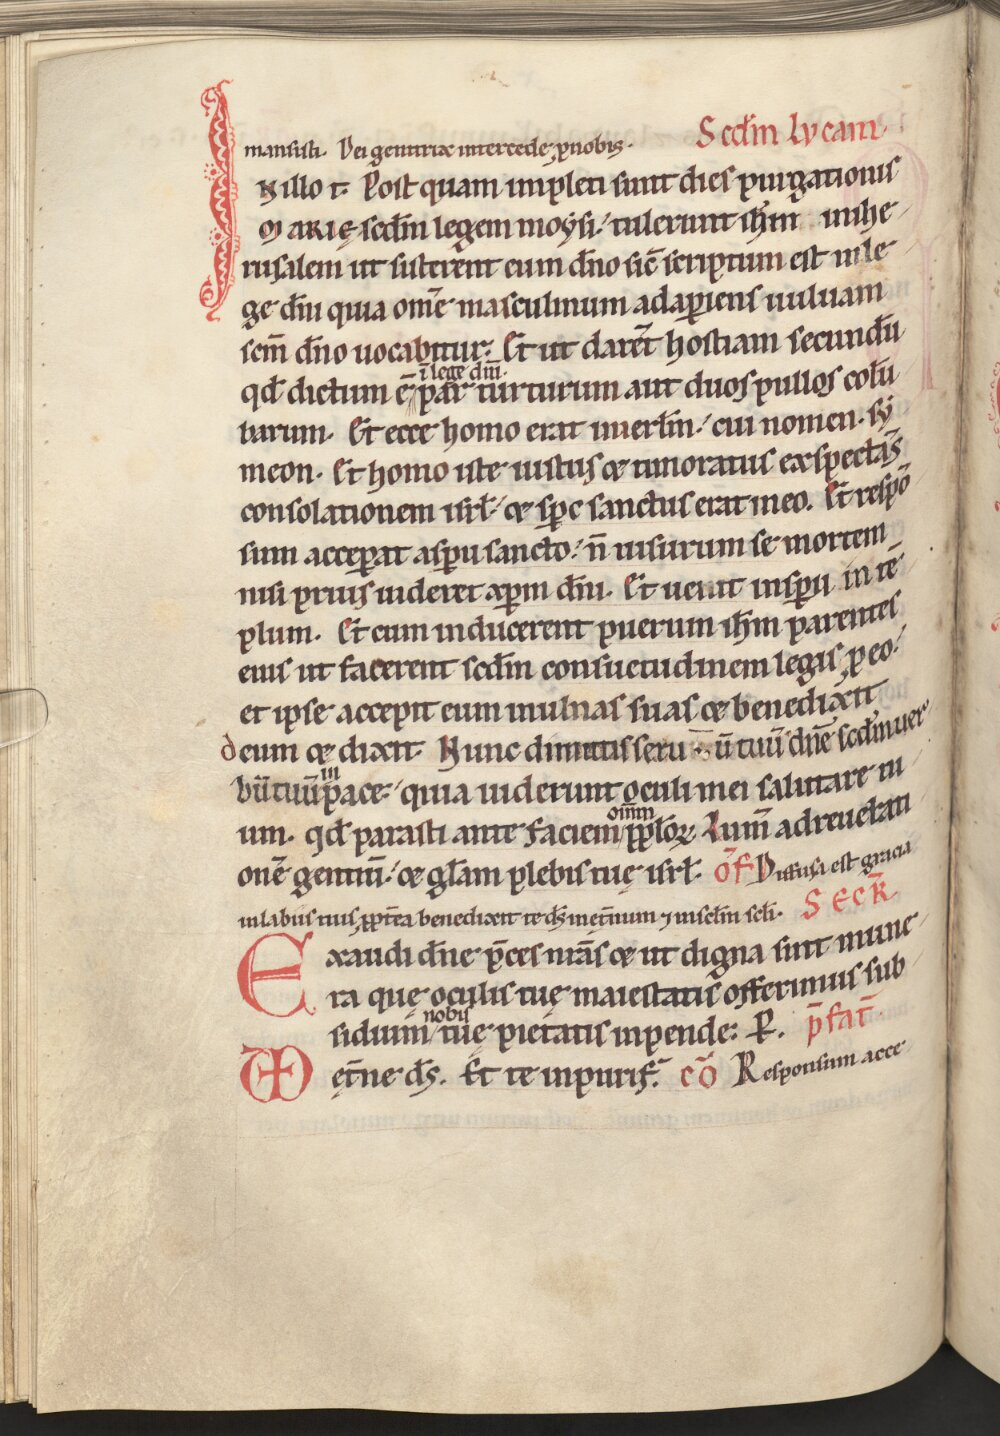 mansisti. Dei genitrix intercede ꝓ nobis. Scd̄m lvcam.
IN illo t̄. Post quam impleti sunt dies purgationis
MARIĘ scd̄m legem moysi. tulerunt ih̄m in ihe
rusalem ut sisterent eum dn̄o sic̄ scriptum est in le
ge dn̄i quia om̄e masculinum adaꝑiens uuluam
scm̄ dn̄o uocabitur. Et ut darēt hostiam secundū
qd̄ dictum ē ī lege dn̄i. par turturum aut duos pullos colū
barum. Et ecce homo erat in ierl̄m. cui nomen. sy
meon. Et homo iste iustus & timoratus exspectās
consolationem isrl̄. & sp̄c sanctus erat in eo. Et respō
sum acceꝑat a sp̄u sancto. n̄ uisurum se mortem
nisi prius uideret xp̄m dn̄i. Et uenit in sp̄u in tē
plum. Et cum inducerent puerum ih̄m parentes
eius ut facerent scd̄m consuetudinem legis ꝑ eo.
et ipse accepit eum in ulnas suas & benedixit
deum & dixit. Nunc dimittis seruū tuū dn̄e scd̄m uer
bū tuū in pace. quia uiderunt oculi mei salutare tu
um. qd̄ parasti ante faciem om̄m pp̄loꝝ. Lum̄ ad reuelati
onē gentiū. & gl̄am plebis tuę isrl̄. of̄ Diffusa est gracia
in labiis tuis ꝓpt̄ea benedixit te ds̄ in et̄num ⁊ in scl̄m scl̄i. SECR̄
Exaudi dn̄e p̄ces nrās & ut digna sint mune
ra que oculis tuę maiestatis offerimus sub
sidium nobis tuę pietatis inpende. P. p̄fat̄
VD ęt̄ne ds̄. Et te in purif̄. cō Responsum acce